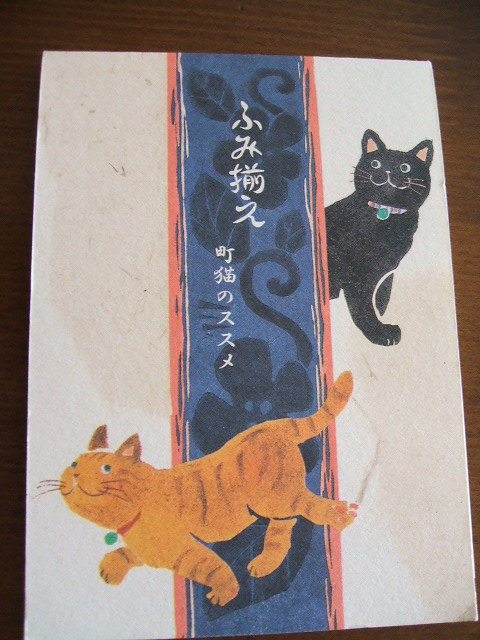 ふみ揃え
町猫のススメ